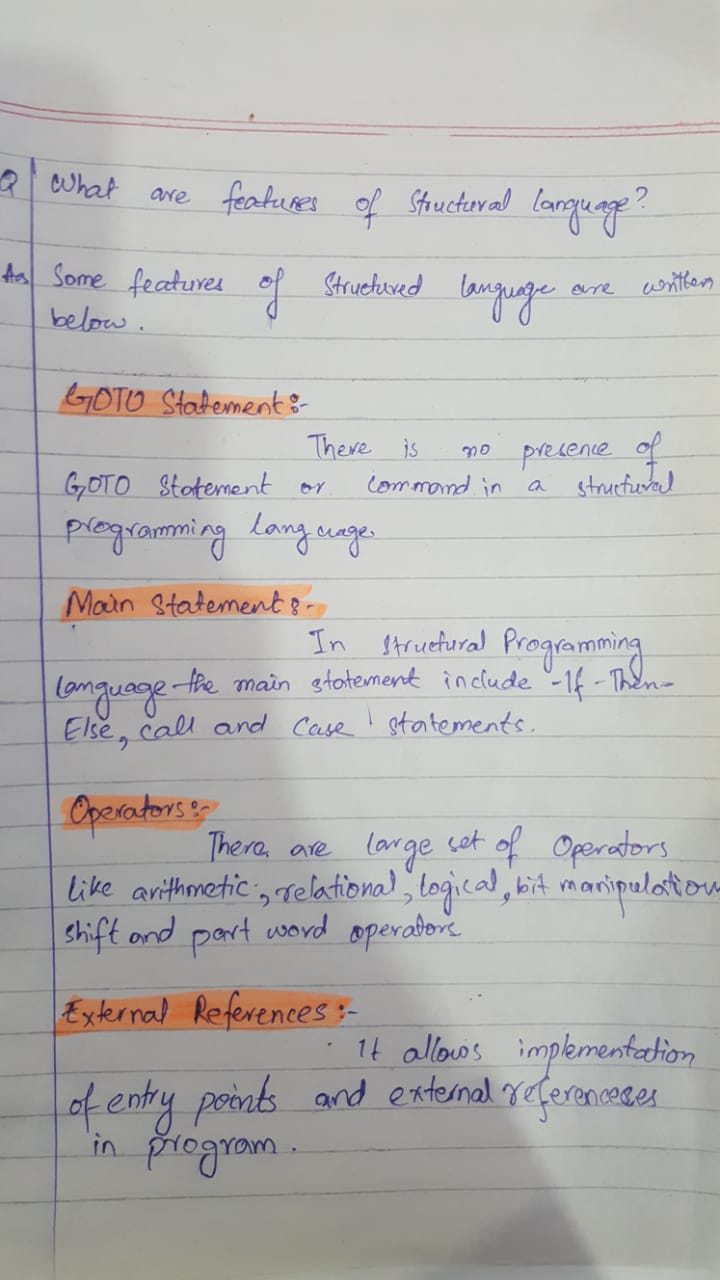 Q What are features of Structural language?
Ans Some features of Structured language are written
below.
GOTO Statement:-
There is no presence of
GOTO Statement or Command in a structural
programming language
Main Statement:-
In Structural Programming
language the main statement include -If-Then-
Else, call and Case' statements.
Operators:-
There are large set of Operators
like arithmetic, relational, logical, bit manipulation
shift and part word operators
External References:-
It allows implementation
of entry points and external referenceses
in program.